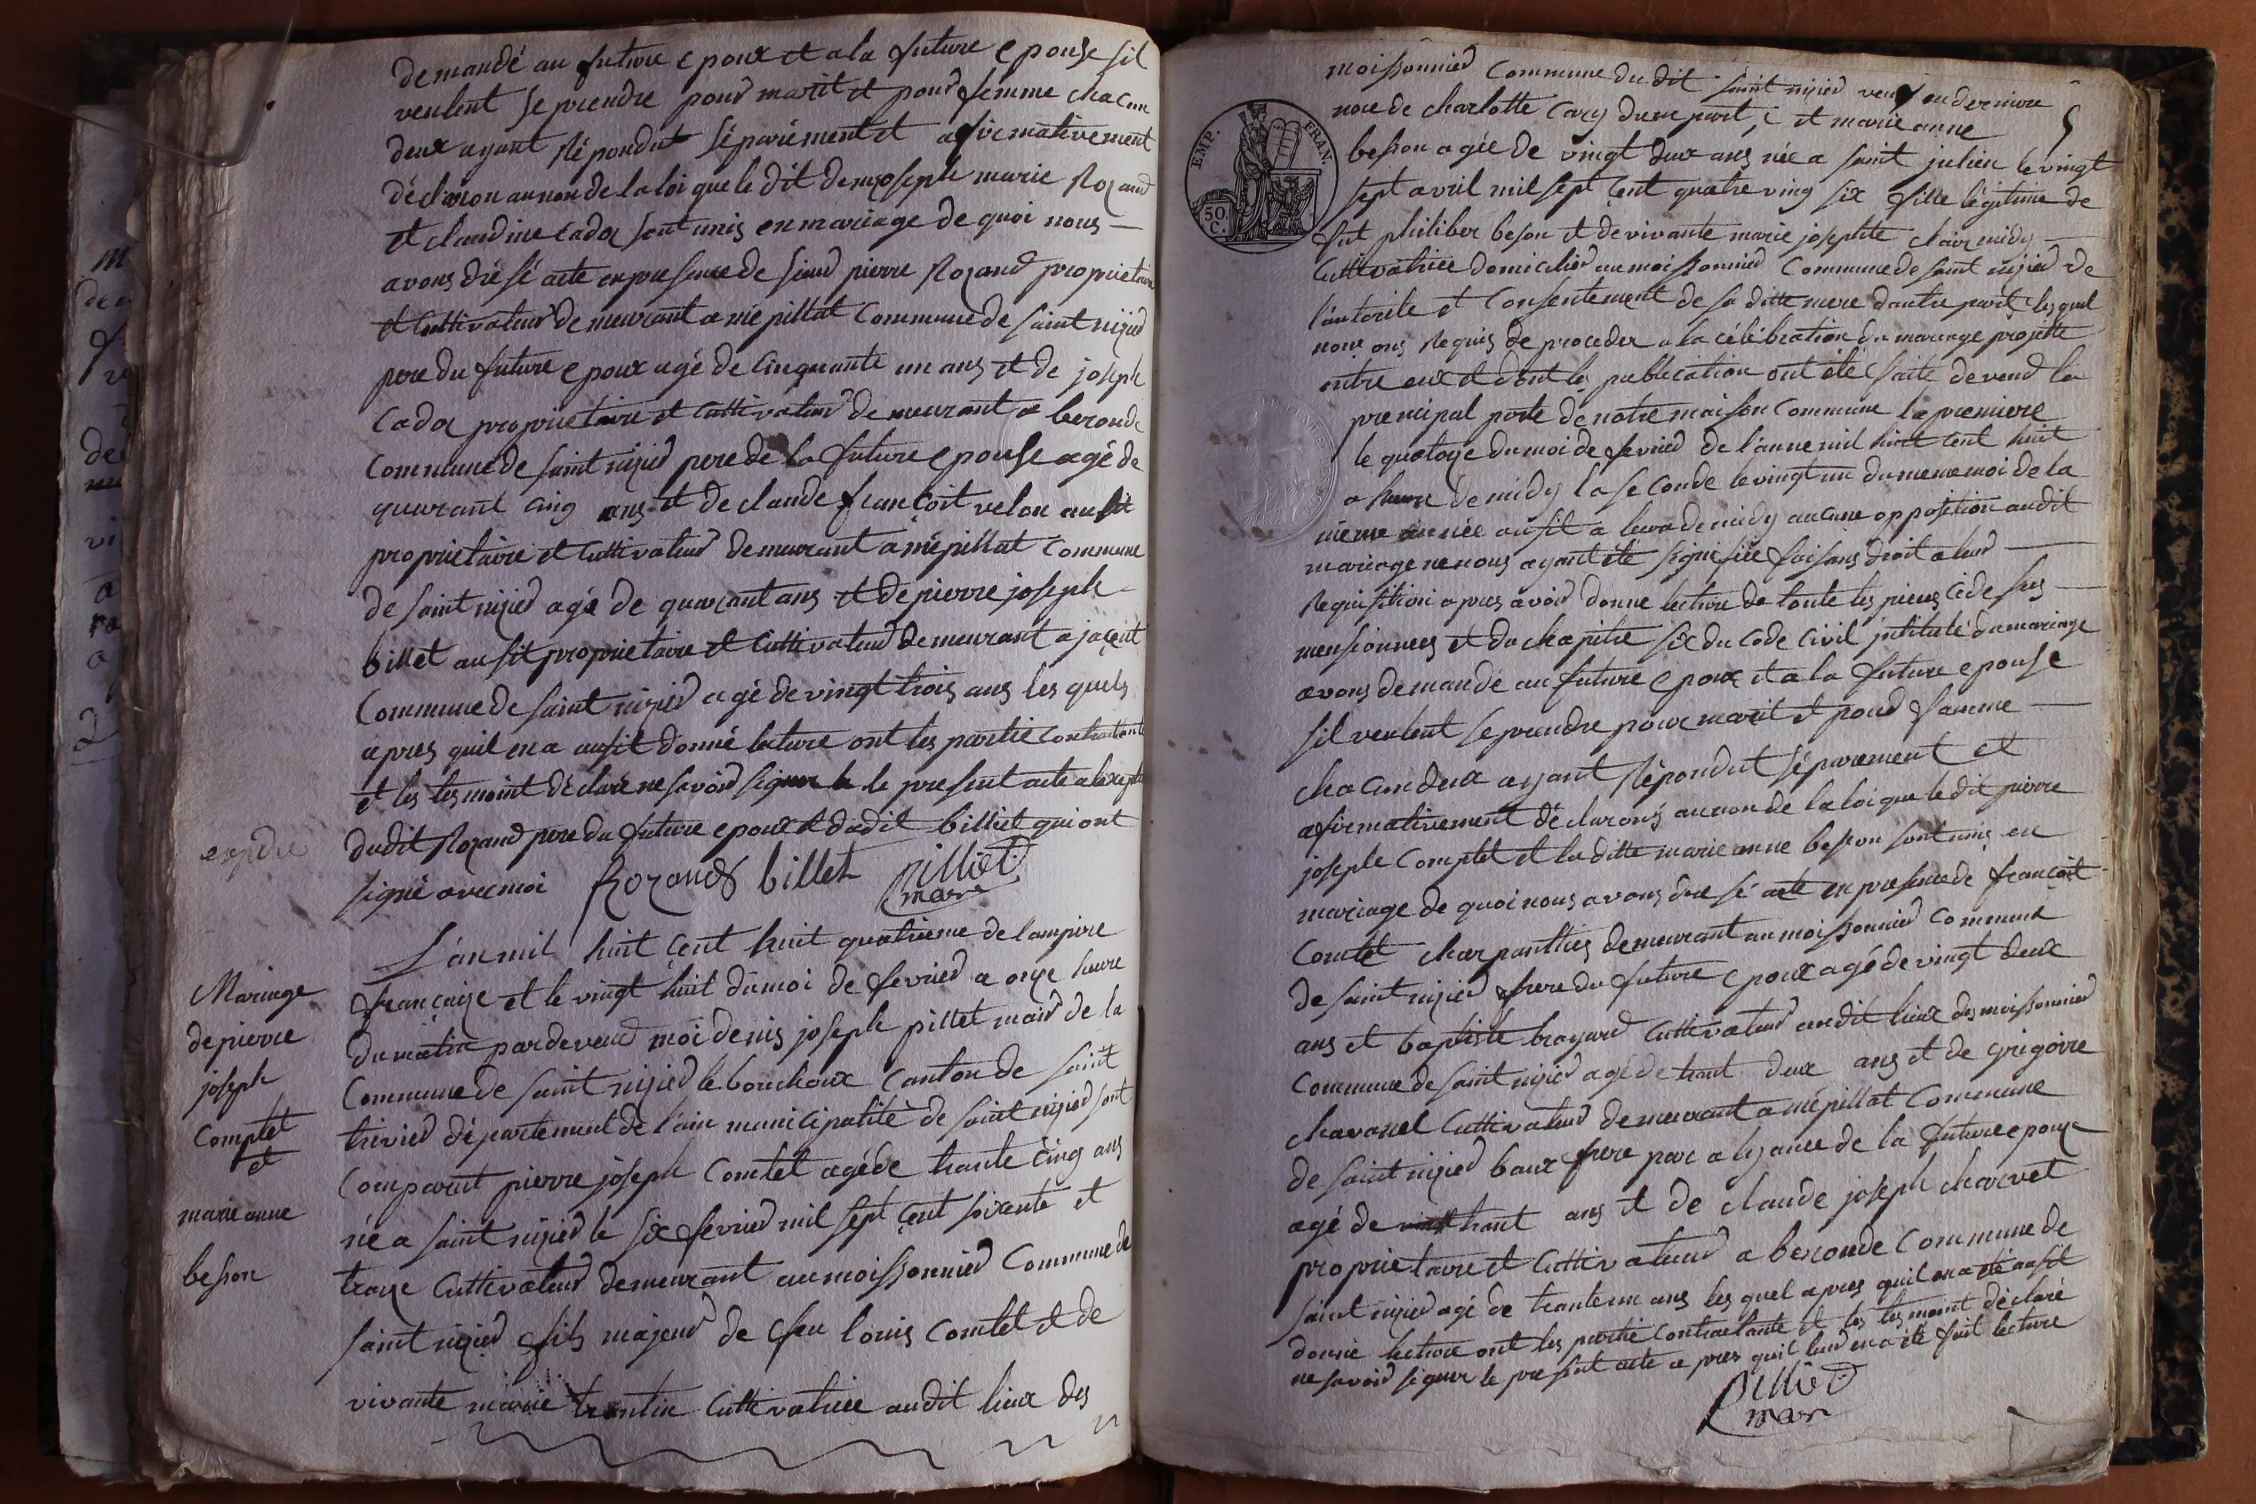 demandé au future epoux et a la future epouse sil
veulent se prendre pour marit et pour femme chacun
deux ayant Répondut séparément et afirmativement
déclaron au non de la loi que le dit denijoseph marie Rozand
et claudine cador sont unis en mariage de quoi nous
avons dresé acte en presence de sieur pierre Rozand proprietaire
et Cultivateur demeurant a mépillat Commune de saint nizied
pere du future epoux agé de Cinquante un ans et de joseph
Cador proprietaire et Cultivateur demeurant a beronde
Commune de saint nizied pere de la future epouse agé de
quarant cinq ans et de claude françoit velon ausit
proprietaire et Cultivateur demeurant a mépillat Commune
de saint nizied agé de quarant ans et de pierre joseph
billet ausit proprietaire et Cultivateur demeurant a jaçeint
Commune de saint nizied agé de vingt trois ans les quels
apres quil en a ausit donné lecture ont les partie Contractante
et les tesmoint déclaré ne savoir signer le present acte a lexeption
dudit Rozand pere du future epoux et dudit billiet qui ont
signé avec moi Rozand billet pilliet
maire
expdié
L'an mil huit cent huit quatrieme de lampire
françaize et le vingt huit du moi de fevried a onze heure
du matin pardevend moi denis joseph pillet maire de la
Commune de saint nizied le bouchoux Canton de saint
trivied département de l'ain municipalité de saint nizied sont
Comparut pierre joseph Comtet agé de trante cinq ans
né a saint nizied le six fevried mil sept cent soixante et
traize Cultivateur demeurant au moissonnied Commune de
saint nizied fils majeur de feu louis Comtet et de
vivante marie trontin Cultivatrice audit lieux des
Mariage
de pierre
joseph
Comptet
et
marie anne
besson
moissonnied Commune du dit saint nizied veuf en derniere
noce de charlotte Cary dune part, et marie anne
5
besson agée de vingt deux ans née a saint julien le vingt
sept avril mil sept cent quatre ving six fille légitime de
fut philiber beson et de vivante marie josephte clair midy
Cultivatrice domicilié au moissonnied Commune de saint nizied de
l'autorite et Consentement de sa ditte mere dautre part les quel
nous ons Requis de proceder a la célébration du mariage projette
entre eux et dont la publication ont été faite devend la
premcipal porte de notre maison Commune la premiere
le quatoze du moi de fevried de l'anne mil huit cent huit
a heure de midy la seConde le vingt un du meme moi de la
méme année ausit a heura de midy aucune opposition audit
mariage ne nous ayant été signifiée faisans droit a leur
Requisition apres avoir donne lecture de toute les pieces cidesus
mensionnees et du chapitre six du Code Civil jntitulé du mariage
avons demandé au future epoux et a la future epouse
sil veulent se prendre pour marit et pour famme
chacun deux ayant Répondut séparement et
afirmativement déclarons au non de la loi que le dit pierre
joseph Comptet et la ditte marie anne besson sont unis en
mariage de quoi nous avons dresé acte en presence de françoit
Comtet charpanttier demeurant au moissonnied Commune
de saint nizied frere du future epoux agé de vingt deux
ans et baptiste brayard Cultivateur audit lieux des moissonnied
Commune de saint nizied agé de trant deux ans et de grigoire
chavanel Cultivateur demeurant a mépillat Commune
de saint nizied baux frere par alyance de la future epouze
agé de trant ans et de claude joseph charvet
proprietaire et Cultivateur a beronde Commune de
saint nizied agé de trante un ans les quel apres quil en a été ausit
donné lecture ont les partie Contractante et les tesmoint déclaré
ne savoir signer le present acte apres quil leur en a été fait lecture
Pilliet
maire
EMP. FRAN.
50
C.